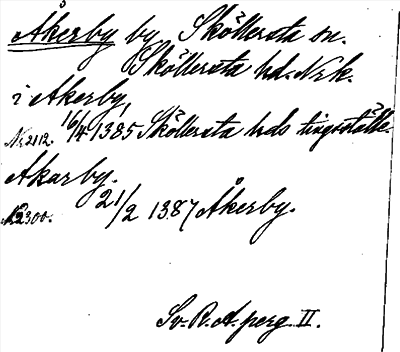 Åkerby by, Sköllersta sn.
Sköllersta hd. Nrk.
i Akerby,
Nr 2112. 16/4 1385 Sköllersta hds tingsställe.
Akarby.
N2300. 21/2 1387 Åkerby.
Sv. R. A. perg. II.